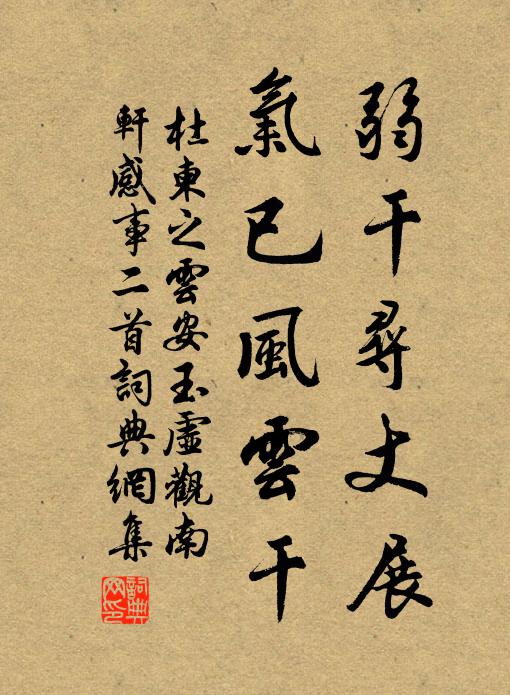 弱干尋丈展
氣已風雲干
杜東之雲安玉虛觀南
軒感事二首詞典網集
詞典网印